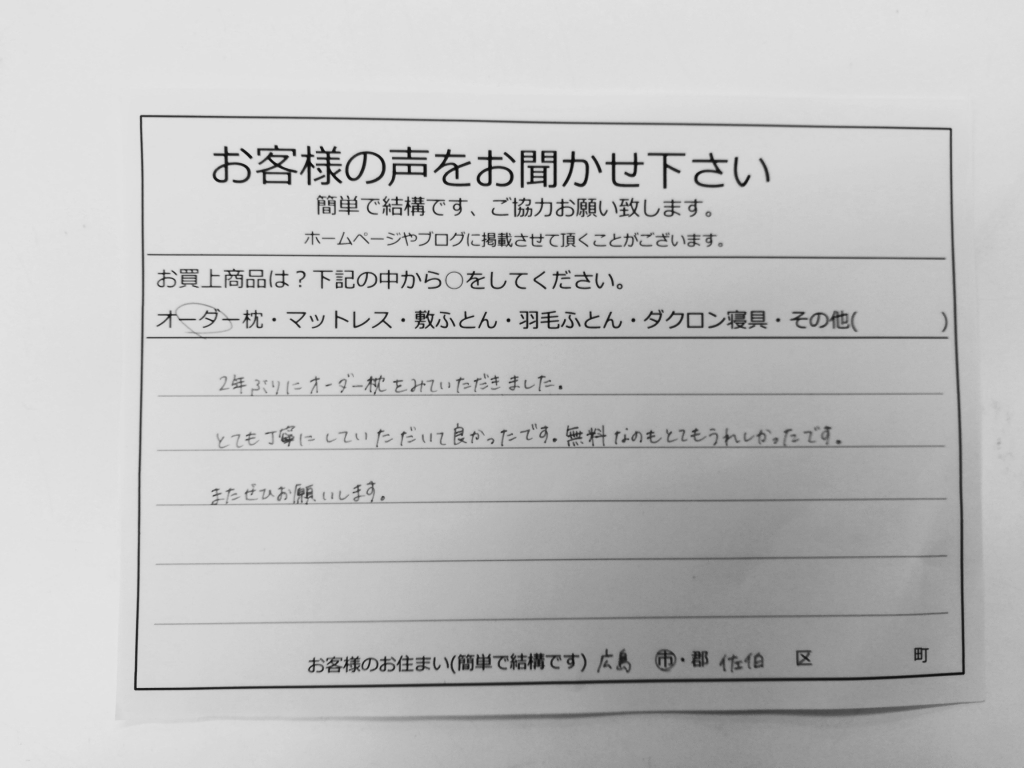 お客様の声をお聞かせ下さい
簡単で結構です、ご協力お願い致します。
ホームページやブログに掲載させて頂くことがございます。
お買上商品は？下記の中から○をしてください。
オーダー枕・マットレス・敷ふとん・羽毛ふとん・ダクロン寝具・その他(　　　　)
2年ぶりにオーダー枕をみていただきました。
とても丁寧にしていただいて良かったです。無料なのもとてもうれしかったです。
またぜひお願いします。
お客様のお住まい(簡単で結構です) 広島 市・郡 佐伯 区 町